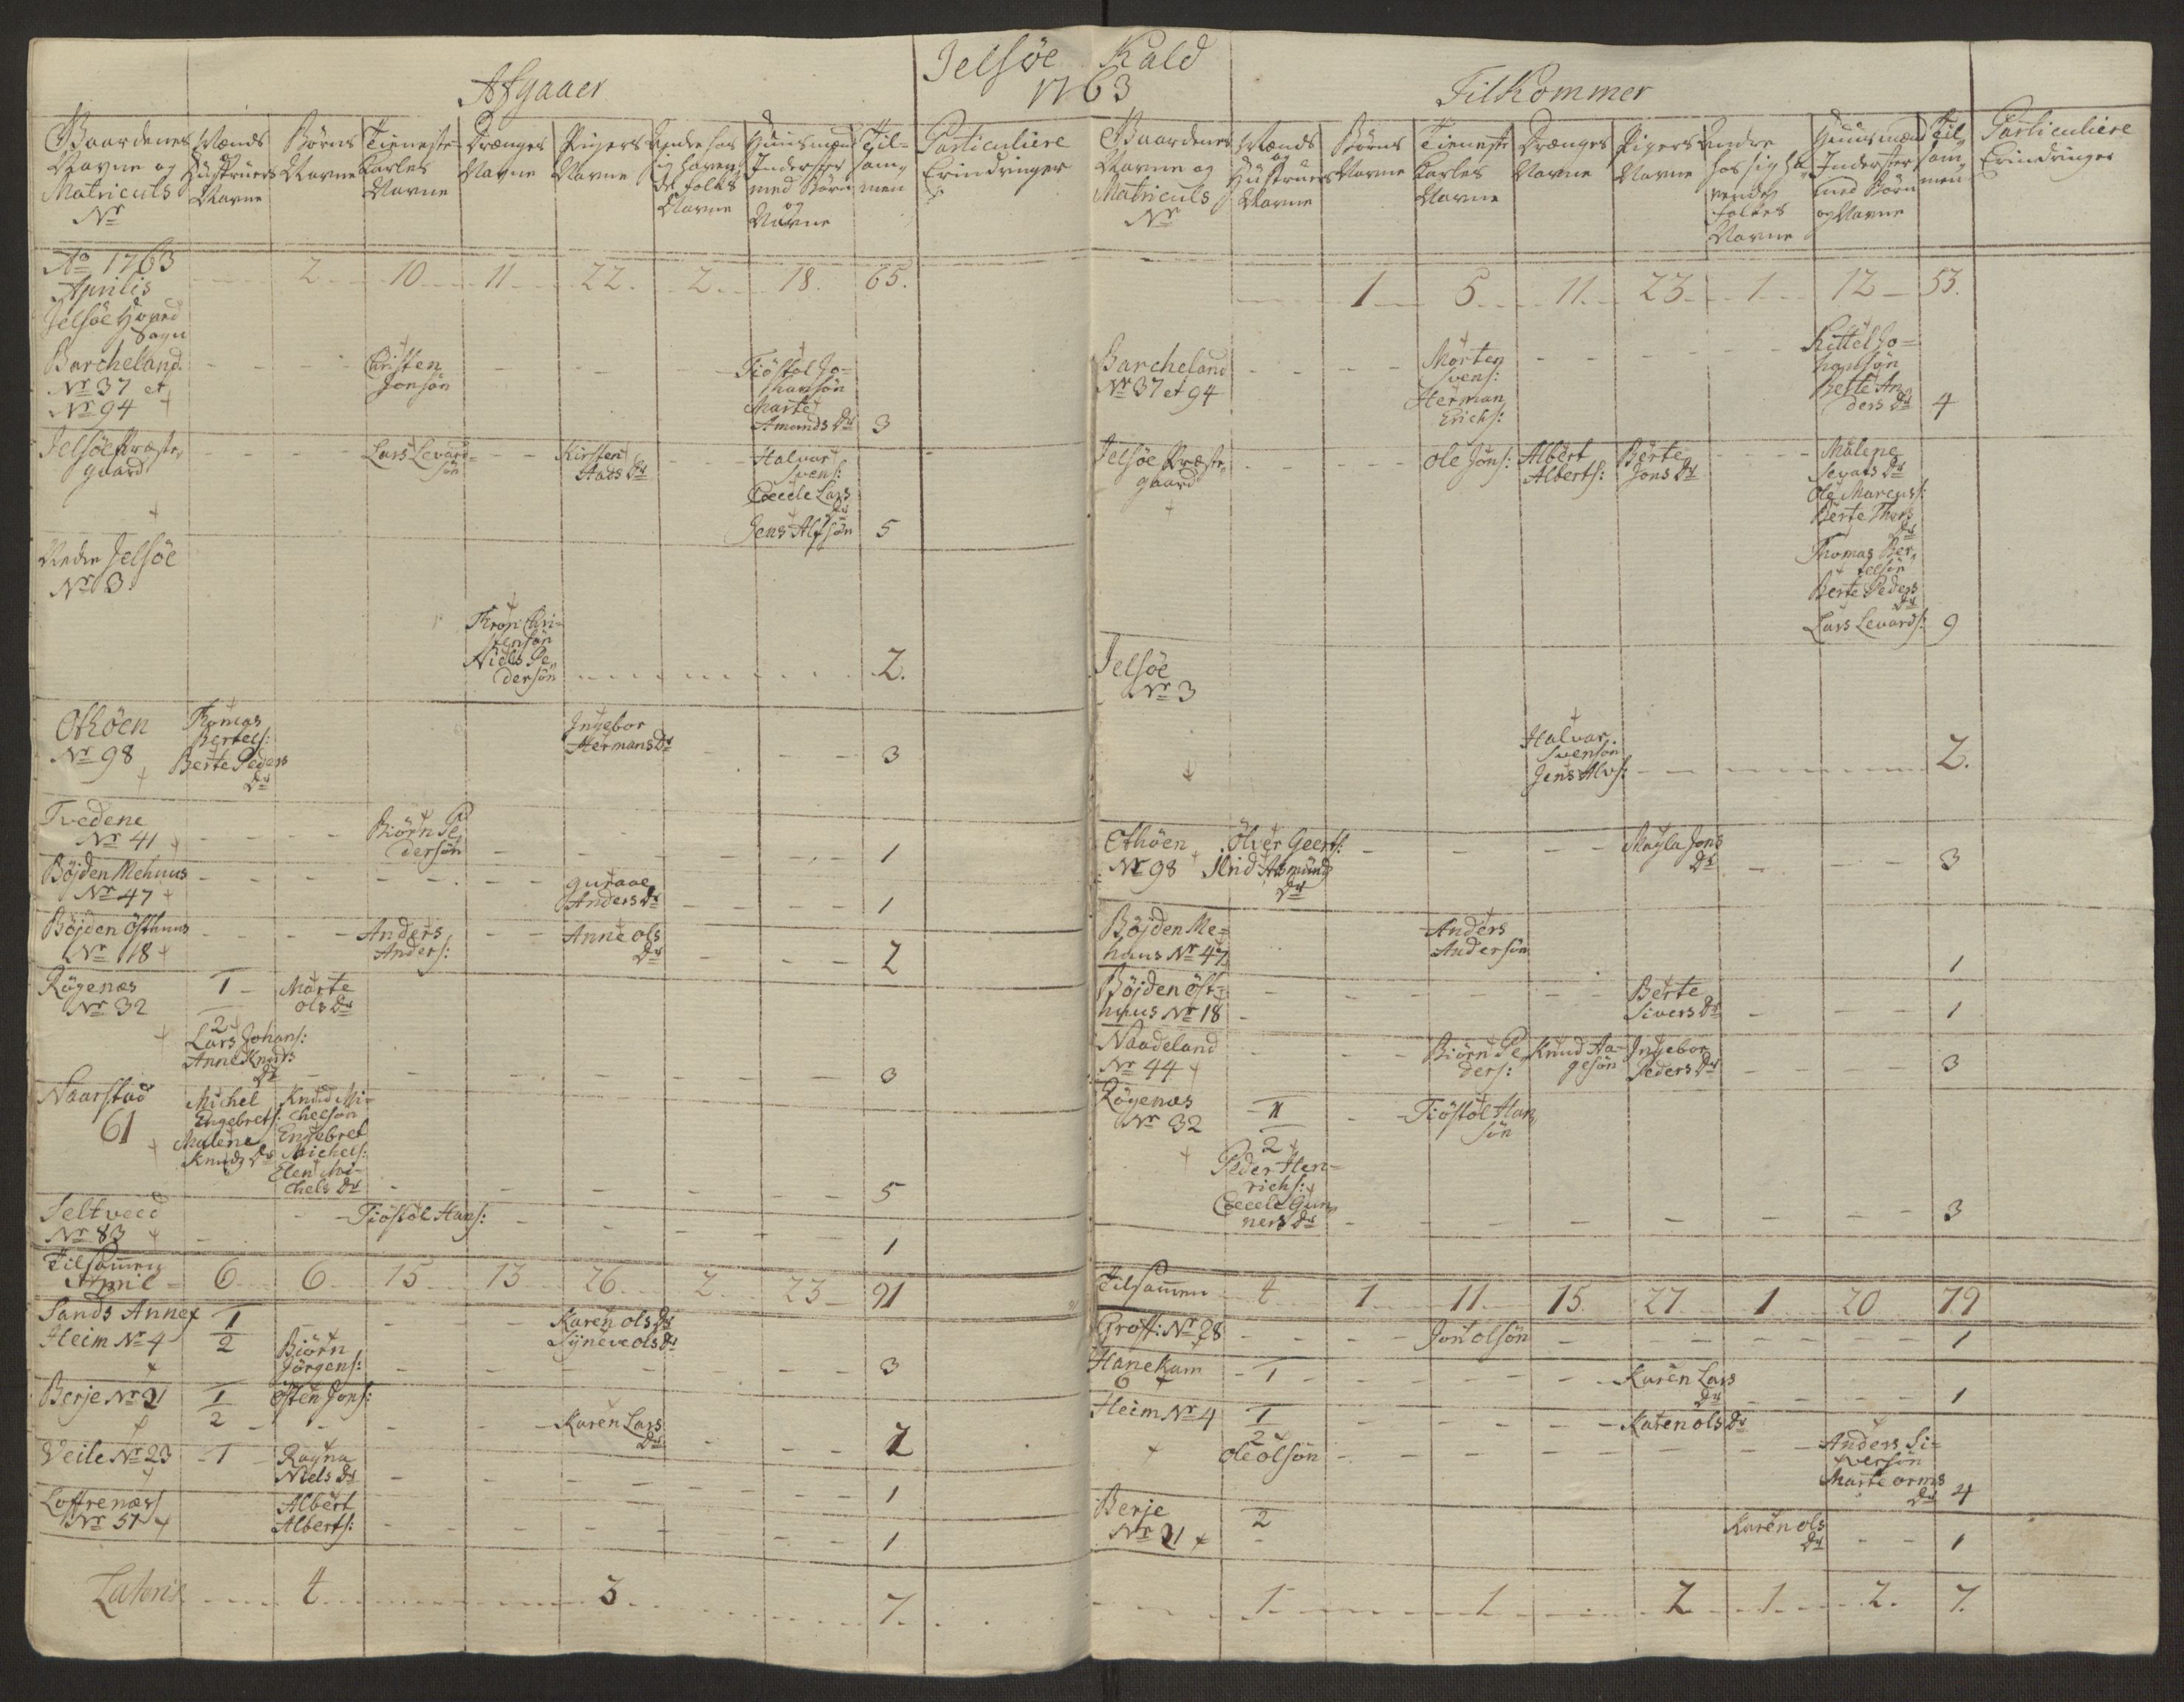 Jelsøe Kald
1763
Afgaaer
Gaardenes Navne og Matriculs No
Mænds Hustruers Navne
Børns Navne
Tieneste Karles Navne
Drænges Navne
Pigers Navne
Andre hos sig havende folks Navne
Huusmænd Inderster med Børn og Navne
Tilsammen
Particuliere Erindringer
Ao 1763 Aprilis Jelsøe Hoved Sogn 2 10 11 22 2 18 65
Barcheland Nr 37 et Nr 94
Christen Jonsøn
Tiøstol Johansøn
Marte Amunds Dr 3
Jelsøe Præstegaard
Lars Levardsøn
Kirsten Mads Dr
Halvar Svens:
Cecele Lars Dr
Jens Alfsøn 5
Nedre Jelsøe Nr 3
Christensøn
Niels Pedersøn 2
Othøen Nr 98
Thomas Bertels:
Berte Peders Dr
Ingebor Hermans Dr 3
Tvedene Nr 41
Biørn Pedersøn 1
Böjden Mehuus Nr 47
Anders Dr 1
Böjden Østhuus Nr 18
Anders Anders:
Anne Ols Dr 2
Røgenæs Nr 32
1
2
Lars Johans:
Anne Knuds Dr
Marte Ols Dr 3
Naarstad 61
Michel Engebrets:
Malene Knuds Dr
Knud Michelsøn
Engebret Michels:
Elen Michels Dr 5
Seltveed Nr 83
Tiøstøl Hans: 1
Tilsammen April 6 6 15 13 26 2 23 91
Sands Annex
Heim Nr 4
1
2
Biørn Jörgens:
Karen Ols Dr
Syneve Ols Dr 3
Berje Nr 21
1
2
Østen Jons:
Karen Lars Dr 2
Veile Nr 23 1
Ragna Niels Dr 1
Loftrenæs Nr 57
Albert Alberts: 1
Lateris 4 3 7
Tilkommer
Gaardenes Navne og Matriculs Nr
Mænds og Hustruers Navne
Børns Navne
Tieneste Karles Navne
Drænges Navne
Pigers Navne
Andre hos sig havende folkes Navne
Huusmænd Inderster med Børn og Navne
Tilsammen
Particuliere Erindringer
1 5 11 23 1 12 53
Barcheland Nr 37 et 94
Mørten Svens:
Herman Erichs:
Kittel Johansøn
Berte Anders Dr 4
Jelsøe Præstegaard
Ole Jöns:
Albert Alberts:
Berte Jons Dr
Malene Sevats Dr
Ole Marcus:
Berte Thers Dr
Thomas Bertelsøn
Berte Peders Dr
Lars Levards: 9
Jelsøe Nr 3
Halvar Svensøn
Jens Alvs: 2
Othöen Nr 98
Ölver Geerts:
Asmunds Dr
Magla Jons Dr 3
Böjden Mehuus Nr 47
Anders Andersøn 1
Böjden Østhuus Nr 18
Berte Sivers Dr 1
Naadeland Nr 44
Biörn Peders:
Knud Aagesøn
Ingebor Peders Dr 3
Røgenæs Nr 32
1
2
Peder Henrichs:
Cecele Gunners Dr
Tiøstøl Hansøn 3
Tilsammen 4 1 11 15 27 1 20 79
Nr 28
Jon Olsön 1
Hanekam 6 1
Karen Lars Dr 1
Heim Nr 4
1
2
Ole Olsøn
Karen Ols Dr
Anders Siversøn
Marte Orms Dr 4
Berje Nr 21 2
Karen Ols Dr 1
1 1 2 1 2 7